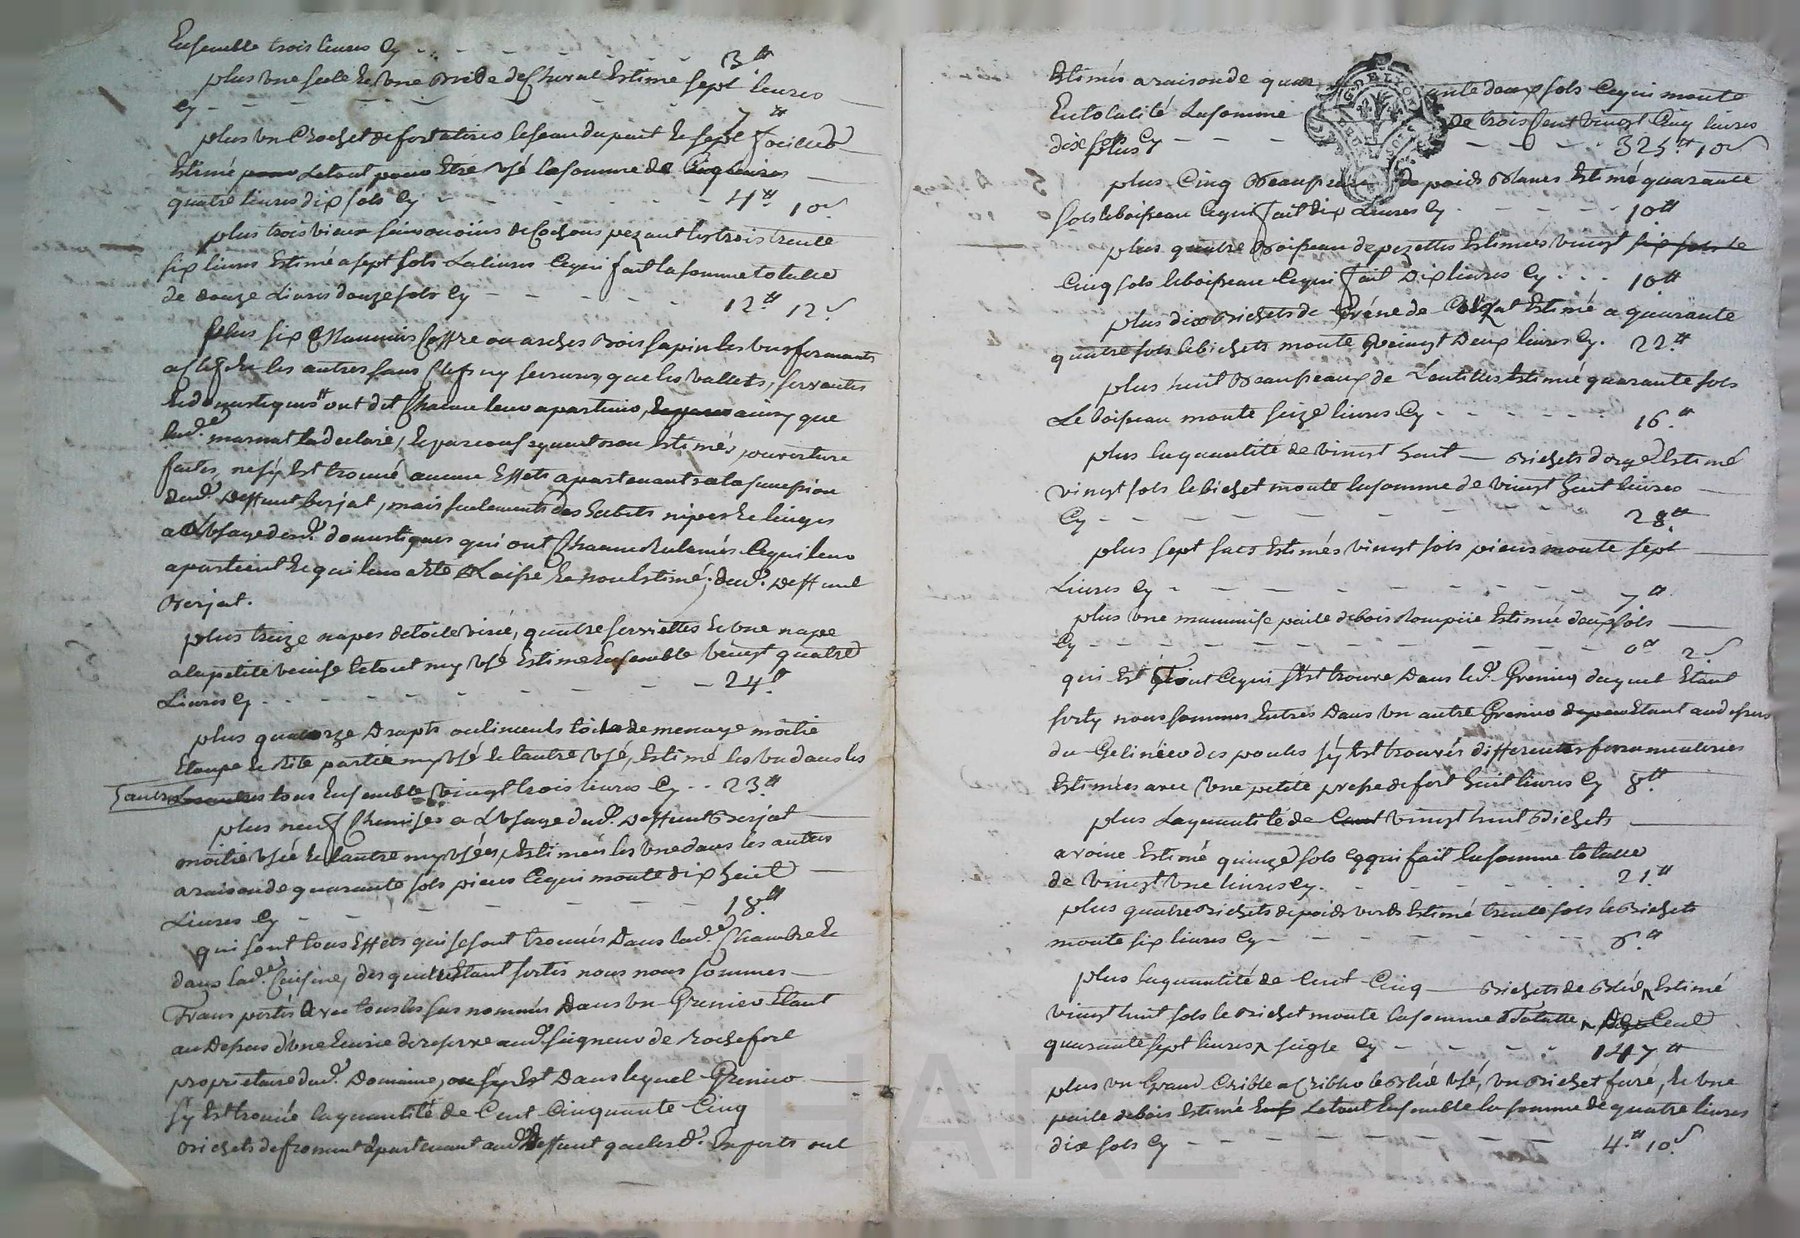 Ensemble trois livres Cy - - - - - 3.₶
plus une selle et une Bride de Cheval Estimé sept livres
Cy - - - - - 7.₶
plus un Crochet de fert a tirer le seau du puit et sept foicieés
Estimé Letout pour Etre usé la somme de Cinq livres
quatre livres dix sols Cy - - - 4.₶ 10.s
plus trois vieux de Cochons pezant les trois trente
six livres Estimé a sept sols La livres Cequi fait la somme totalle
de Douze Livres douze sols Cy - - - - - 12.₶ 12.s
plus six Mauvais Coffre ou arches Bois sapin les uns formants
a clef et les autres sans Clef ny serrure, que les vallets, servantes
et domestiques ont dit Chacun leur apartenir, ainsy que
lad.e marmat la declaré, et par consequent non Estimés, ouverture
faites, ne s'y Est trouvé aucune Effets apartenants a la sucession
dud.t Deffunt berjat, mais seulements des habits nipes et linges
a L'usage des d.ts domestiques qui ont Chacun Reclamés Cequi leur
apartient et qui leur a Eté Laissé et non Estimé; dud.t Deffunt
Berjat.
plus treize napes detoile usée, quatre serviettes et une nape
a la petite venise letout my usé Estimé Ensemble vingt quatre
Livres Cy - - - - - - - 24.₶
plus quatorze Drapts ou linceuls toile de menage moitié
Etoupe et Rite partie my usé et l'autre usé, Estimé les un dans les
autres tous Ensemble vingt trois livres Cy - - 23.₶
plus neuf Chemises a L'usage dud.t Deffunt Berjat
moitié usée et l'autre my usées, Estimés les une dans les autres
a raison de quarante sols pieces Cequi monte dix huit
Livres Cy - - - - - 18.₶
qui sont tous Effets qui se sont trouvés Dans lad.e Chambre et
dans lad.e Cuisine, desquelles Etant sortis nous nous sommes
Transportés avec tous les sus nommés Dans un Grenier Etant
au Dessus d'une Ecurie de reserve aud.t seigneur de Rochefort
proprietaire dud.t Domaine, Dans lequel Grenier
s'y Est trouvé la quantité de Cent Cinquante Cinq
Bichets de froment apartenant aud.t deffunt que les d.ts Experts ont
Estimés a raison de quarante deux sols Cequi monte
En totalité La somme de trois Cent vingt Cinq livres
dix sols Cy - - - - - 325.₶ 10.s
plus Cinq Boisseaux de poids Blancs Estimé quarante
sols le boisseau Cequi fait dix Livres Cy - - - 10₶
plus quatre Boisseau de pezettes Estimées vingt six sols le
Cinq sols le boisseau Cequi fait Dix livres Cy - - - 10₶
plus dix Bichets de Gréne de Colzat Estimé a quarante
quatre sols le bichets monte vingt Deux livres Cy. 22.₶
plus huit Beausseaux de Lentilles Estimé quarante sols
Le boisseau monte seize livres Cy - - - - 16.₶
plus la quantité de vingt huit Bichets d'orge Estimé
vingt sols le bichet monte la somme de vingt huit livres
Cy - - - - - - 28.₶
plus sept sacs Estimés vingt sols pieces monte sept
Livres Cy - - - - - - 7.₶
plus une mauvaise paile debois Rompüe Estimé deux sols
Cy - - - - - - 0₶ 2.s
qui Est tout Cequi s'Est trouvé Dans led.t Grenier, duquel Etant
sorty nous sommes Entres Dans un autre Grenier Etant audessus
du Gelinéer des poules s'y Est trouvés differentes
Estimées avec une petite de fert huit livres Cy 8₶
plus La quantité de vingt huit Bichets
avoine Estimé quinze sols Cequi fait la somme totalle
de vingt une livres Cy. - - - - 21.₶
plus quatre Bichets de poids verds Estimé trente sols le Bichets
monte six livres Cy - - - - - 6.₶
plus la quantité de Cent Cinq Bichets de Bléd Estimé
vingt huit sols le Bichet monte la somme totalle, Cent
quarante sept livres, seigle Cy - - - - 147₶
plus un Grand Crible a Cribler le Bléd usé, un Bichet furé, et une
paile debois Estimé Letout Ensemble la somme de quatre livres
dix sols Cy - - - - - 4.₶ 10.s